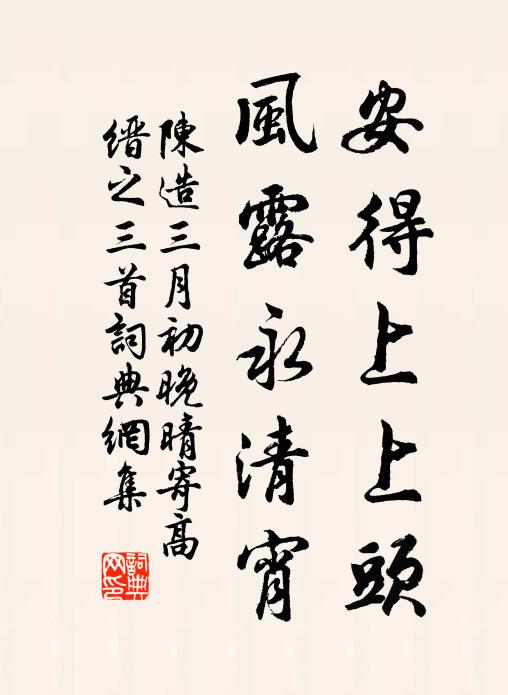 安得上上頭
風露永清宵
陳造三月初晚晴寄高
縉之三首詞典網集
詞典网印